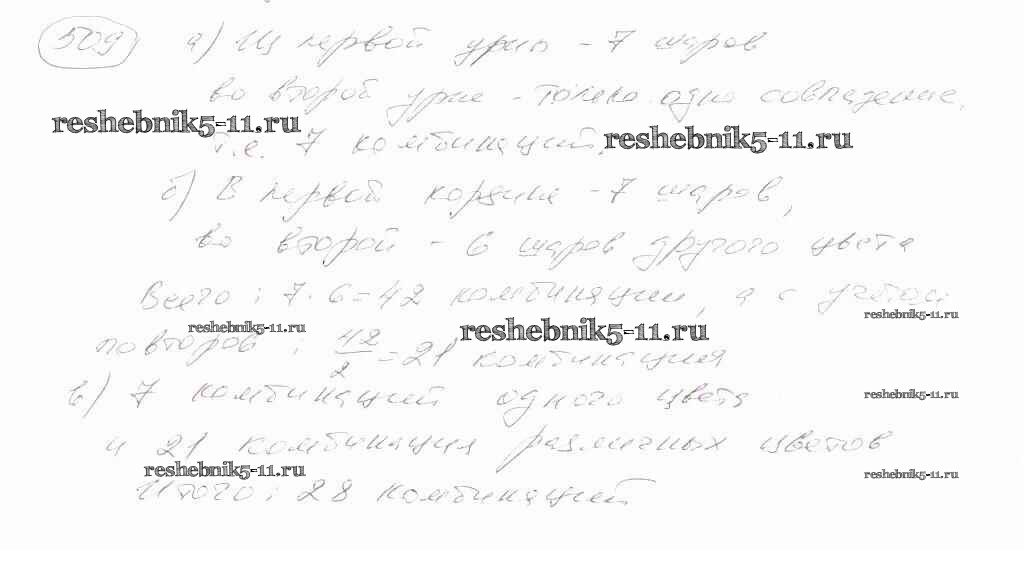 509 а) Из первой урны - 7 шаров
во второй урне - только одно совпадение,
reshebnik5-11.ru
т.е. 7 комбинаций. reshebnik5-11.ru
б) В первой корзине - 7 шаров,
во второй - 6 шаров другого цвета
Всего: 7 · 6 = 42 комбинации, а с учётом
reshebnik5-11.ru
reshebnik5-11.ru reshebnik5-11.ru
повторов: 42/2 = 21 комбинация
в) 7 комбинаций одного цвета
reshebnik5-11.ru
и 21 комбинация различных цветов
reshebnik5-11.ru reshebnik5-11.ru
Итого: 28 комбинаций